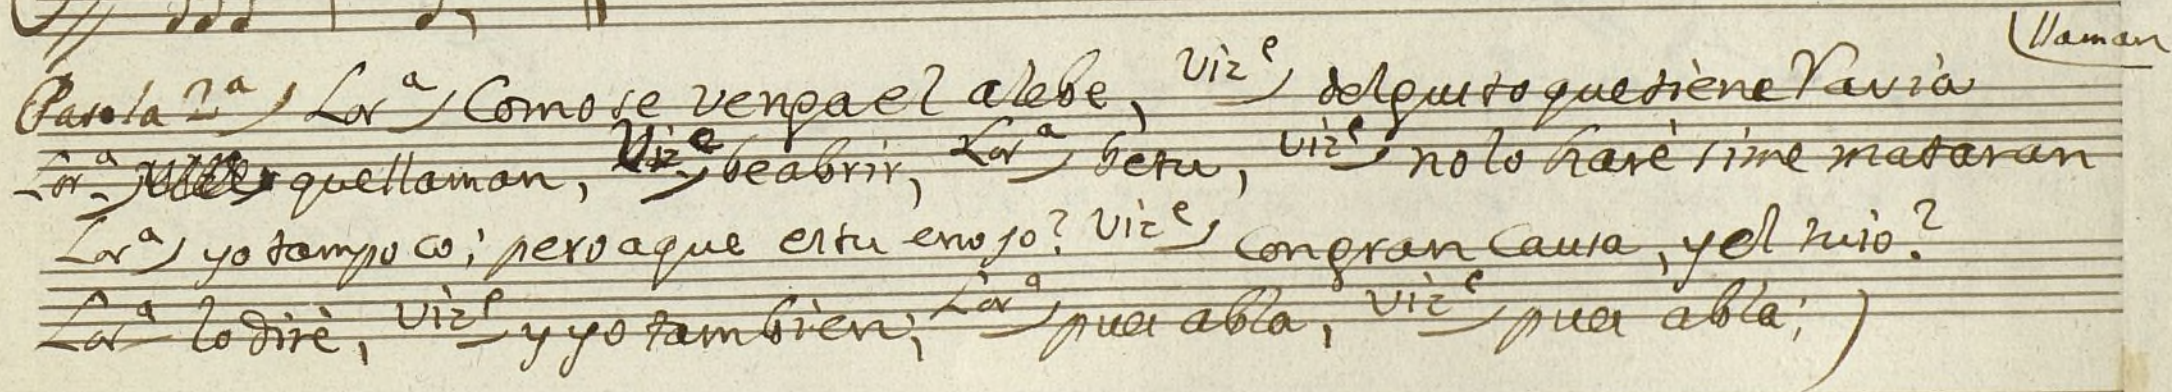 (llaman
(Parola 2ª) Lorª) Como se venga el alebe, Vizᵉ) del gusto que tiene Ravia
Lorª) que llaman, Vizᵉ) be abrir, Lorª) be tu, Vizᵉ) no lo harè si me mataran
Lorª) yo tampoco; pero a que es tu enojo? Vizᵉ) con gran Causa, y el tuio?
Lorª lo dirè, Vizᵉ) y yo tambien; Lorª) pues abla, Vizᵉ) pues abla; )